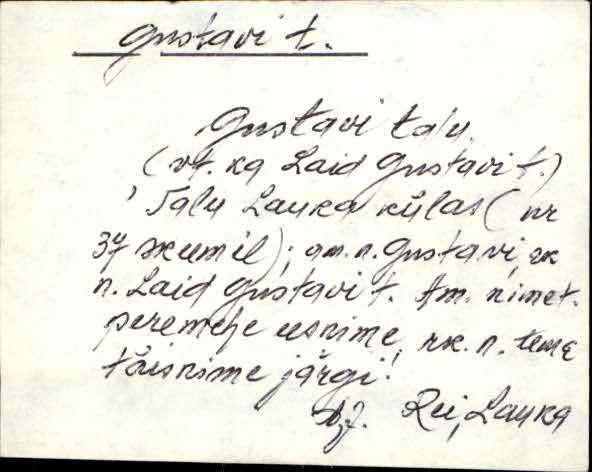 Gustavi t.
Gustavi talu
(vt. ka Laid Gustavi t.)
Talu Lauka külas (nr
37 skeemil); am.n. Gustavi, rk
n. Laid Gustavi t. Am. nimet.
peremehe eesnime, rk. n. tema
täisnime järgi.
Rei, Lauka